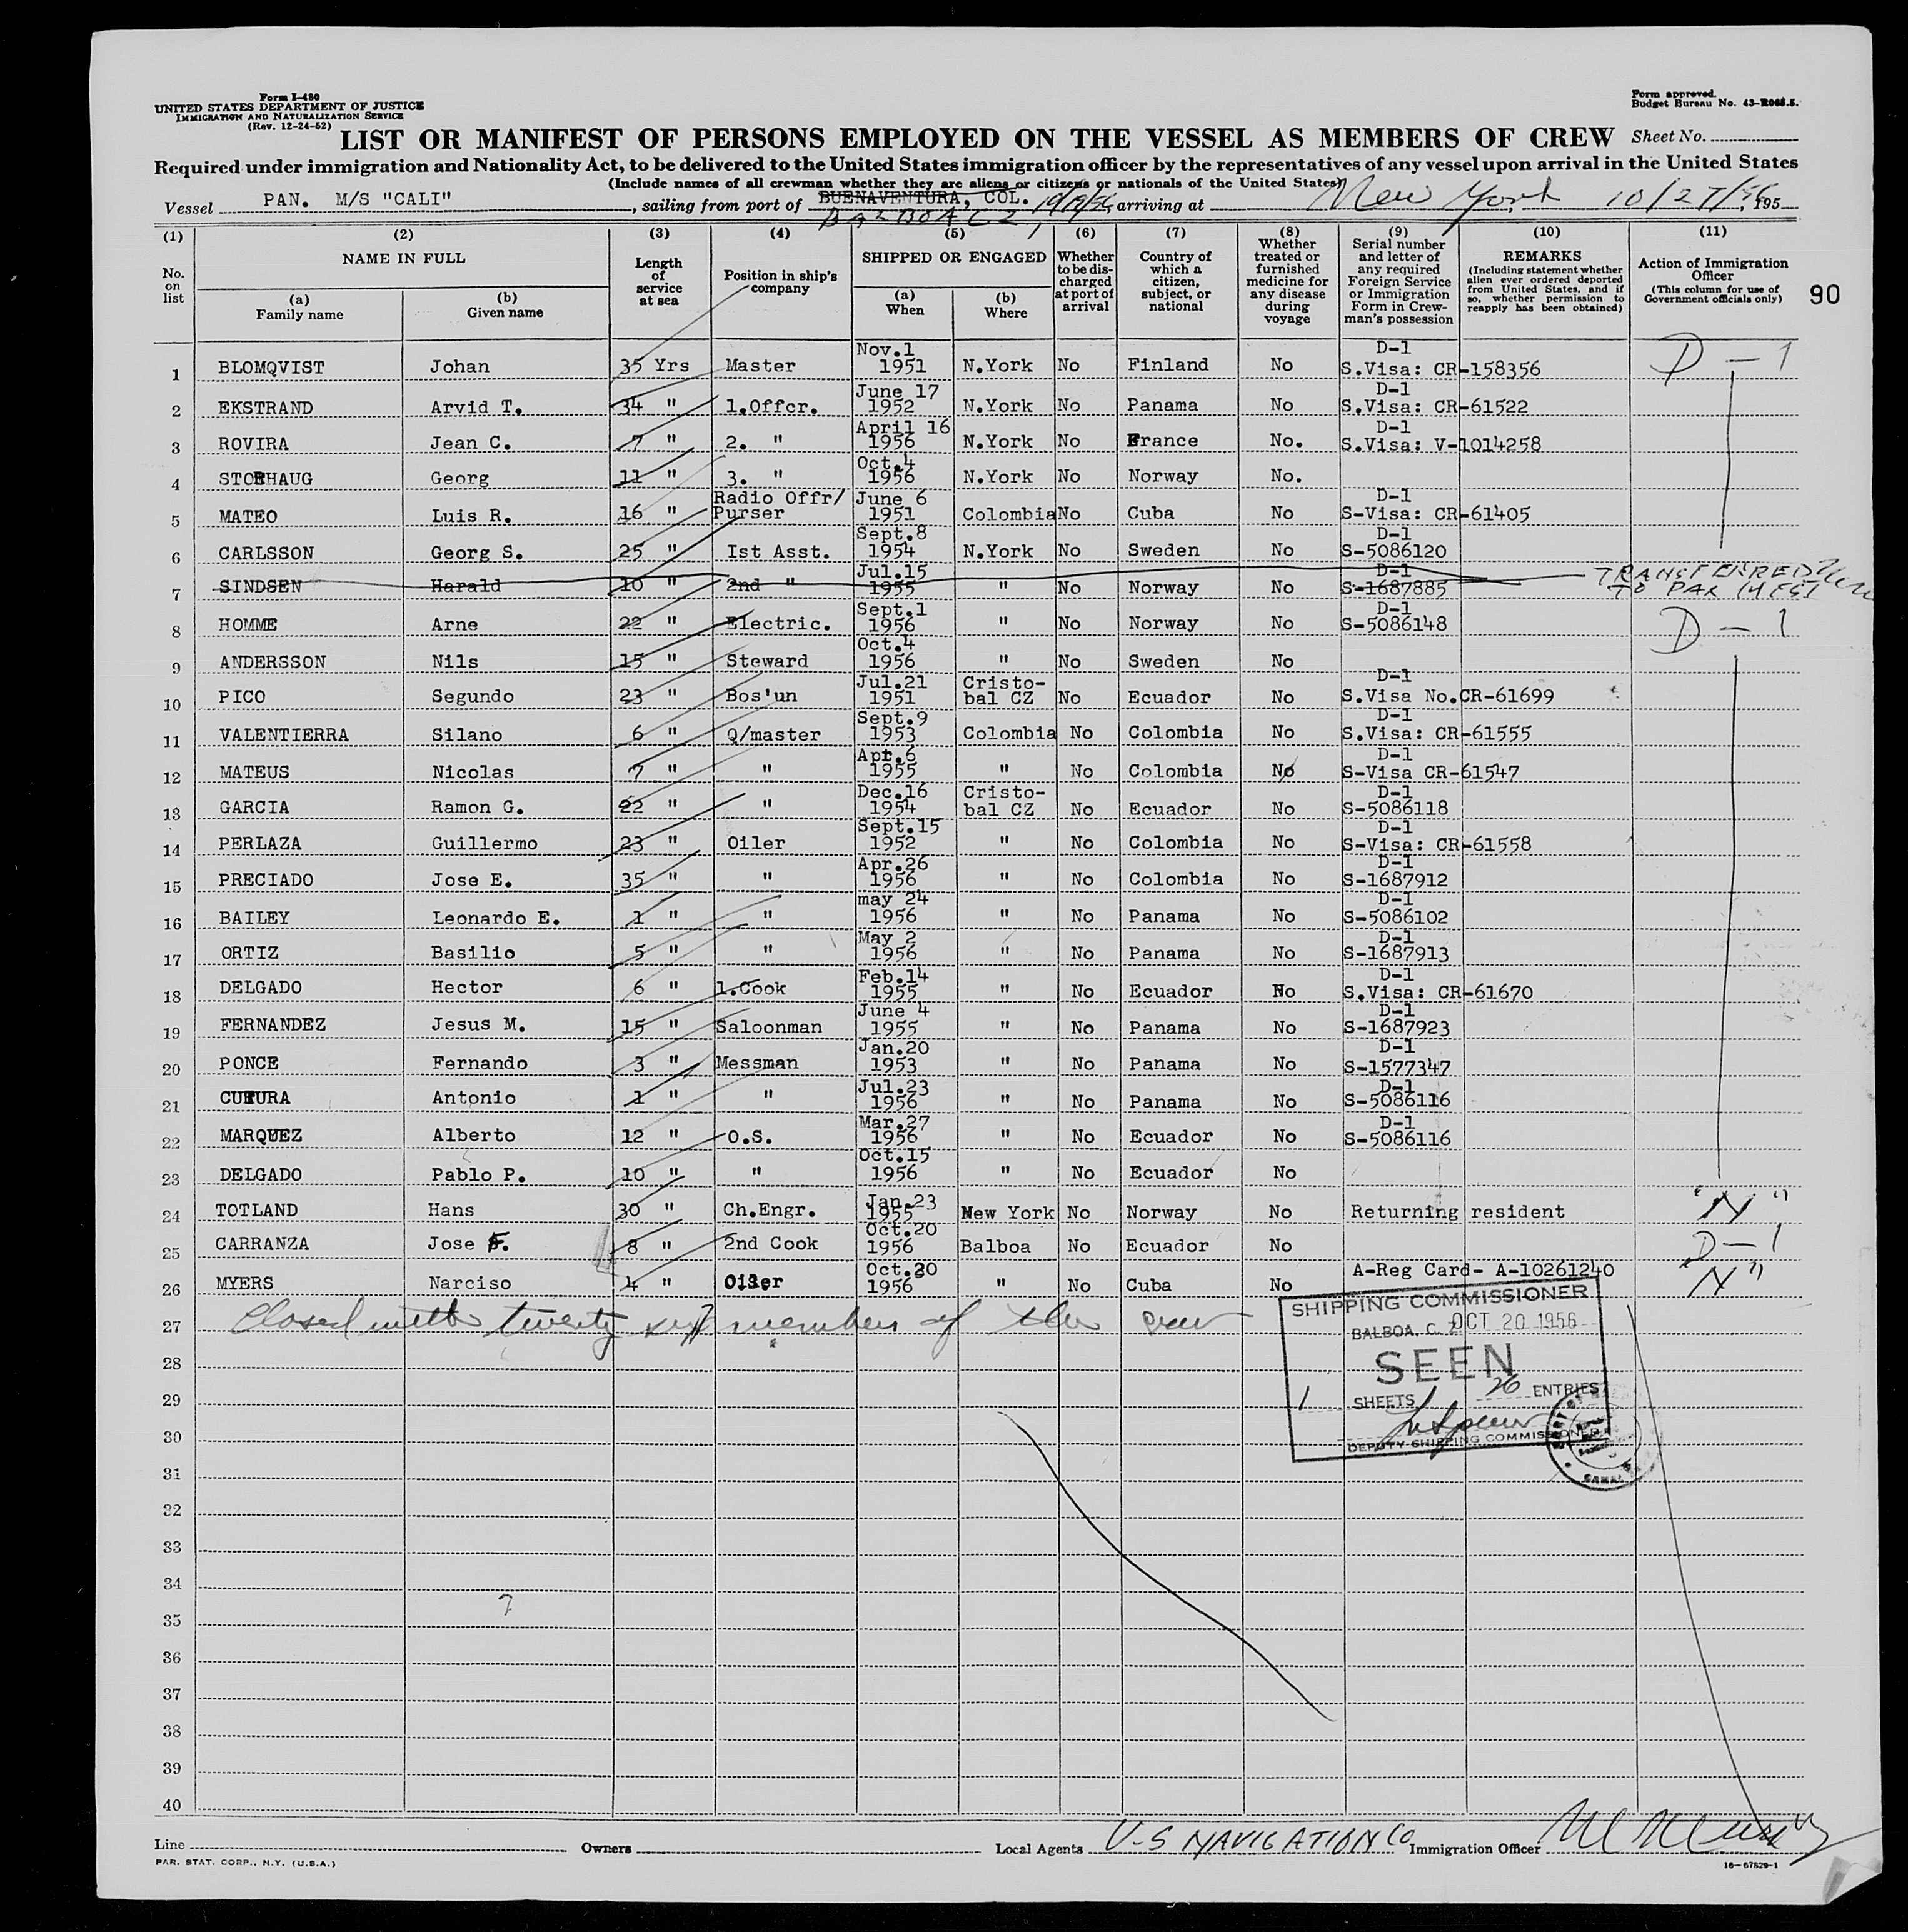 Form I-480
UNITED STATES DEPARTMENT OF JUSTICE
IMMIGRATION AND NATURALIZATION SERVICE
(Rev. 12-24-52)
Form approved.
Budget Bureau No. 43-R065.5.
LIST OR MANIFEST OF PERSONS EMPLOYED ON THE VESSEL AS MEMBERS OF CREW Sheet No.
Required under immigration and Nationality Act, to be delivered to the United States immigration officer by the representatives of any vessel upon arrival in the United States
(Include names of all crewman whether they are aliens or citizens or nationals of the United States)
Vessel PAN. M/S "CALI", sailing from port of BUENAVENTURA, COL. 10/19/56, arriving at New York 10/27/56, 195
BALBOA CZ
(1) (2) (3) (4) (5) (6) (7) (8) (9) (10) (11)
No. on list
NAME IN FULL
(a) Family name
(b) Given name
Length of service at sea
Position in ship's company
SHIPPED OR ENGAGED
(a) When
(b) Where
Whether to be discharged at port of arrival
Country of which a citizen, subject, or national
Whether treated or furnished medicine for any disease during voyage
Serial number and letter of any required Foreign Service or Immigration Form in Crewman's possession
REMARKS
(Including statement whether alien ever ordered deported from United States, and if so, whether permission to reapply has been obtained)
Action of Immigration Officer
(This column for use of Government officials only)
90
1 BLOMQVIST Johan 35 Yrs Master Nov.1 1951 N.York No Finland No D-1 S.Visa: CR-158356 D-1
2 EKSTRAND Arvid T. 34 " 1.Offcr. June 17 1952 N.York No Panama No D-1 S.Visa: CR-61522
3 ROVIRA Jean C. 7 " 2. " April 16 1956 N.York No France No. D-1 S.Visa: V-1014258
4 STORHAUG Georg 11 " 3. " Oct.4 1956 N.York No Norway No.
5 MATEO Luis R. 16 " Radio Offr/ Purser June 6 1951 Colombia No Cuba No D-1 S-Visa: CR-61405
6 CARLSSON Georg S. 25 " Ist Asst. Sept.8 1954 N.York No Sweden No D-1 S-5086120
7 SINDSEN Harald 10 " 2nd " Jul.15 1955 " No Norway No D-1 S-1687885 TRANSFERRED TO PAK
8 HOMME Arne 22 " Electric. Sept.1 1956 " No Norway No D-1 S-5086148 D-1
9 ANDERSSON Nils 15 " Steward Oct.4 1956 " No Sweden No
10 PICO Segundo 23 " Bos'un Jul.21 1951 Cristo-bal CZ No Ecuador No D-1 S.Visa No.CR-61699
11 VALENTIERRA Silano 6 " Q/master Sept.9 1953 Colombia No Colombia No D-1 S.Visa: CR-61555
12 MATEUS Nicolas 7 " " Apr.6 1955 " No Colombia No D-1 S-Visa CR-61547
13 GARCIA Ramon G. 22 " " Dec.16 1954 Cristo-bal CZ No Ecuador No D-1 S-5086118
14 PERLAZA Guillermo 23 " Oiler Sept.15 1952 " No Colombia No D-1 S-Visa: CR-61558
15 PRECIADO Jose E. 35 " " Apr.26 1956 " No Colombia No D-1 S-1687912
16 BAILEY Leonardo E. 1 " " may 24 1956 " No Panama No D-1 S-5086102
17 ORTIZ Basilio 5 " " May 2 1956 " No Panama No D-1 S-1687913
18 DELGADO Hector 6 " 1.Cook Feb.14 1955 " No Ecuador No D-1 S.Visa: CR-61670
19 FERNANDEZ Jesus M. 15 " Saloonman June 4 1955 " No Panama No D-1 S-1687923
20 PONCE Fernando 3 " Messman Jan.20 1953 " No Panama No D-1 S-1577347
21 CUTURA Antonio 1 " " Jul.23 1956 " No Panama No D-1 S-5086116
22 MARQUEZ Alberto 12 " O.S. Mar.27 1956 " No Ecuador No D-1 S-5086116
23 DELGADO Pablo P. 10 " " Oct.15 1956 " No Ecuador No
24 TOTLAND Hans 30 " Ch.Engr. Jan.23 1955 New York No Norway No Returning resident "N"
25 CARRANZA Jose F. 8 " 2nd Cook Oct.20 1956 Balboa No Ecuador No D-1
26 MYERS Narciso 4 " Oiler Oct.20 1956 " No Cuba No A-Reg Card- A-10261240 "N"
27 Closed with twenty six members of the crew
28
29
30
31
32
33
34
35
36
37
38
39
40
SHIPPING COMMISSIONER
BALBOA, C. Z. OCT 20 1956
SEEN
1 SHEETS 26 ENTRIES
DEPUTY SHIPPING COMMISSIONER
CANAL
Line Owners Local Agents U-S NAVIGATION CO Immigration Officer
PAR. STAT. CORP., N.Y. (U.S.A.)
16-67529-1